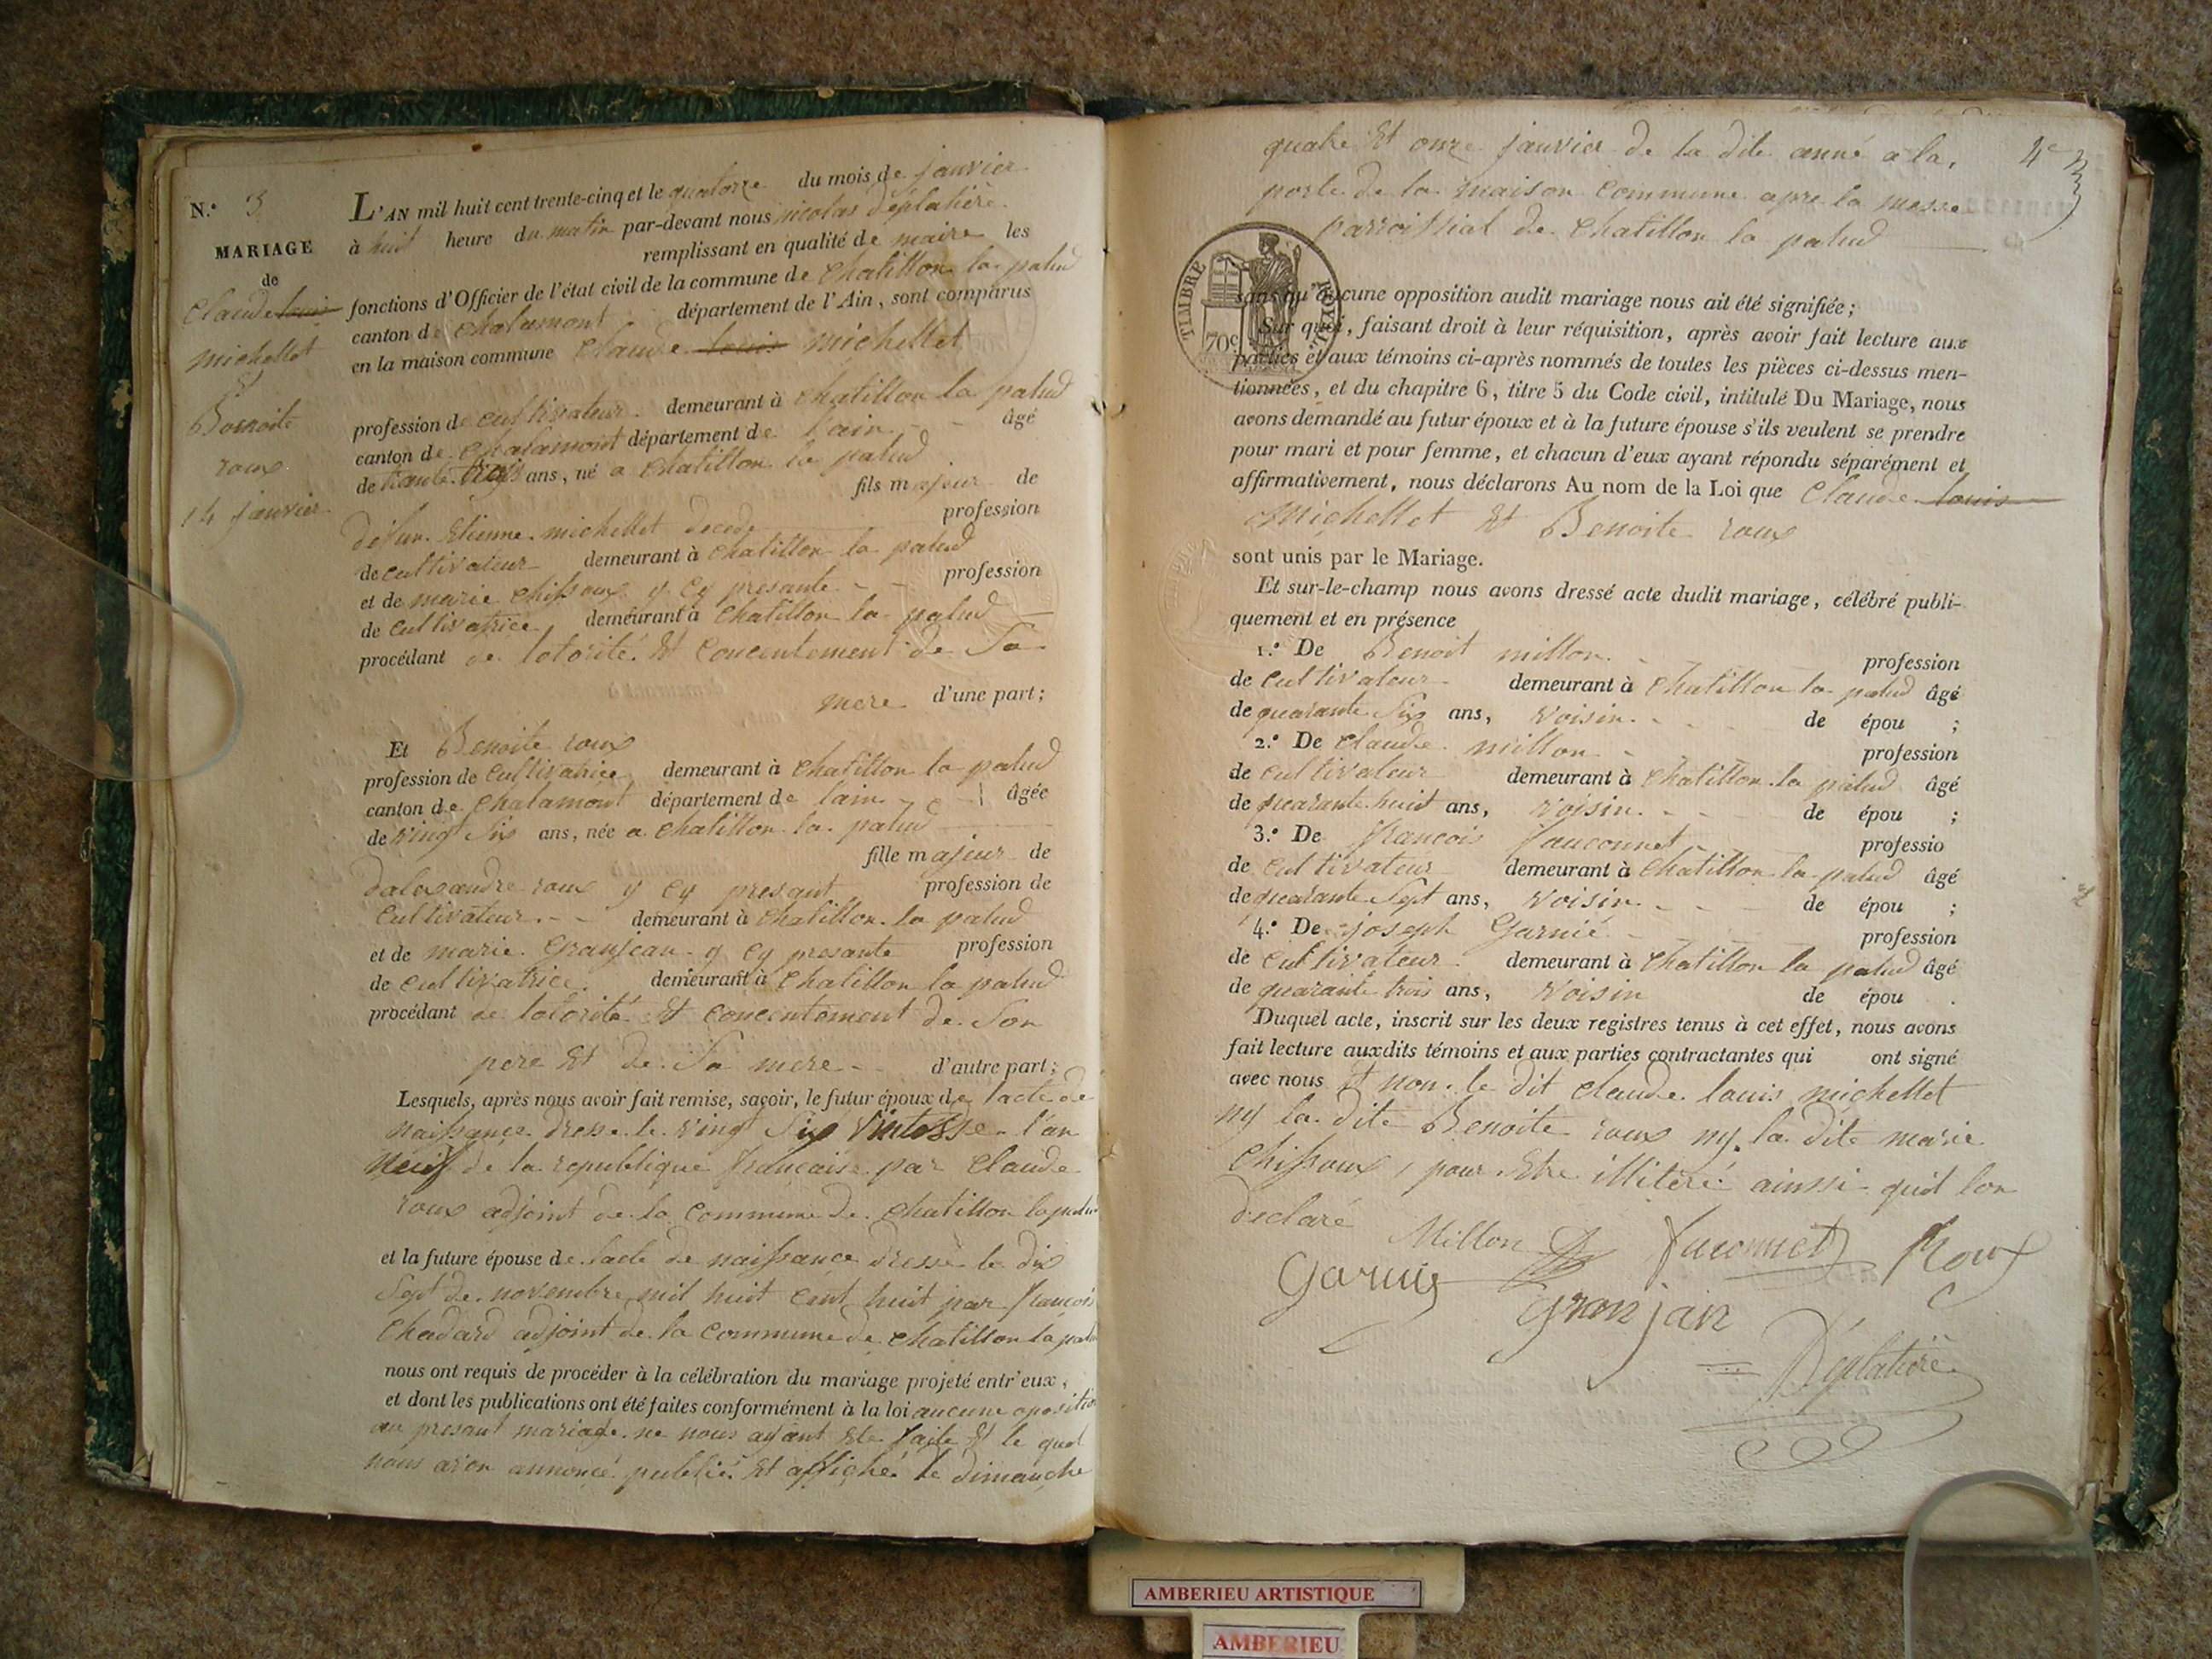 N.° 3
MARIAGE
de
Claude louis
michellet
Et
Benoite
roux
14 janvier
L'AN mil huit cent trente-cinq et le quatorze du mois de janvier
à huit heure du matin par-devant nous nicolas déplatière
remplissant en qualité de maire les
fonctions d'Officier de l'état civil de la commune de Chatillon la palud
canton de Chalamont département de l'Ain, sont comparus
en la maison commune Claude louis michellet
profession de cultivateur demeurant à Chatillon la palud
canton de Chalamont département de l'ain âgé
de trante trois ans, né a Chatillon la palud
fils majeur de
défun Etienne michellet decede profession
de cultivateur demeurant à Chatillon la palud
et de marie Chissoux y Cy presante profession
de Cultivatrice demeurant à Chatillon la palud
procédant de lotorité Et Concentement de Sa
mere d'une part;
Et Benoite roux
profession de Cultivatrice demeurant à Chatillon la palud
canton de Chalamont département de lain âgée
de vingt Six ans, née a Chatillon la palud
fille majeur de
dalexandre roux y Cy presant profession de
Cultivateur demeurant à Chatillon la palud
et de marie Granjean y Cy presante profession
de Cultivatrice demeurant à Chatillon la palud
procédant de lotorité Et Concentement de Son
pere Et de Sa mere d'autre part;
Lesquels, après nous avoir fait remise, savoir, le futur époux de lacte de
naissance dressé le vingt Six l'an
neuf de la republique francaise par Claude
roux adjoint de la Commune de Chatillon la palud
et la future épouse de lacte de naissance dressé le dix
Sept de novembre mil huit cent huit par francois
Chadard adjoint de la Commune de Chatillon la palud
nous ont requis de procéder à la célébration du mariage projeté entr'eux,
et dont les publications ont été faites conformément à la loi aucune oposition
au presant mariage ne nous ayant Ete faite Et le quel
nous avon annoncé publié Et affiché le dimanche
quatre Et onze janvier de la dite anné a la 4e
porte de la maison Commune apre la messe
parroissial de Chatillon la palud
TIMBRE ROYAL
70c
sans qu'aucune opposition audit mariage nous ait été signifiée;
Sur quoi, faisant droit à leur réquisition, après avoir fait lecture aux
parties et aux témoins ci-après nommés de toutes les pièces ci-dessus men-
tionnées, et du chapitre 6, titre 5 du Code civil, intitulé Du Mariage, nous
avons demandé au futur époux et à la future épouse s'ils veulent se prendre
pour mari et pour femme, et chacun d'eux ayant répondu séparément et
affirmativement, nous déclarons Au nom de la Loi que Claude louis
Michellet Et Benoite roux
sont unis par le Mariage.
Et sur-le-champ nous avons dressé acte dudit mariage, célébré publi-
quement et en présence
1.° De Benoit millon profession
de Cultivateur demeurant à Chatillon la palud âgé
de quarante Six ans, voisin de épou ;
2.° De Claude millon profession
de Cultivateur demeurant à Chatillon la palud âgé
de quarante huit ans, voisin de épou ;
3.° De francois fauconnet professio
de Cultivateur demeurant à Chatillon la palud âgé
de quarante Sept ans, voisin de épou ;
4.° De joseph Garnié profession
de Cultivateur demeurant à Chatillon la palud âgé
de quarante trois ans, voisin de épou .
Duquel acte, inscrit sur les deux registres tenus à cet effet, nous avons
fait lecture auxdits témoins et aux parties contractantes qui ont signé
avec nous Et non le dit Claude louis michellet
ny la dite Benoite roux ny la dite marie
Chissoux, pour Etre illiteré ainssi quil lon
declaré
Millon Fuconnet Roux
Garnie Granjan
Déplatière
AMBERIEU ARTISTIQUE
AMBERIEU